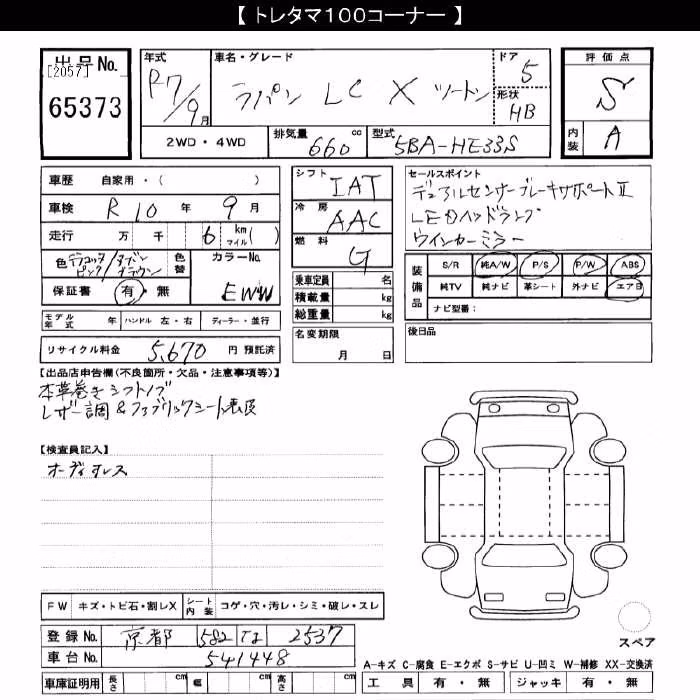 【 トレタマ100コーナー 】
出品No.
[2057]
65373
年式
R7/9月
車名・グレード
ラパン LC X ツートン
ドア
5
形状
HB
評価点
S
内装
A
2WD・4WD
排気量
660 cc
型式
5BA-HE33S
車歴 自家用・( )
車検 R10年 9月
走行 万 千 6 km マイル( )
色 テラコッタピンク/アーバンブラウン
色替
カラーNo.
EWW
保証書 有・無
シフト
IAT
冷房
AAC
燃料
G
セールスポイント
デュアルセンサーブレーキサポートⅡ
LEDヘッドランプ
ウインカーミラー
装備品
S/R 純A/W P/S P/W ABS
純TV 純ナビ 革シート 外ナビ エア日
ナビ型番:
乗車定員 名
積載量 kg
総重量 kg
モデル年式 年 ハンドル 左・右 ディーラー・並行
リサイクル料金 5,670 円 預託済
名変期限
月 日
後日品
【出品店申告欄(不良箇所・欠品・注意事項等)】
本革巻きシフトノブ
レザー調&ファブリックシート表皮
【検査員記入】
オーディオレス
FW キズ・トビ石・割レX シート内装 コゲ・穴・汚レ・シミ・破レ・スレ
登録No. 京都 582 T2 2537
車台No. 541448
車庫証明用 長さ cm 幅 cm 高さ cm
スペア
A-キズ C-腐食 E-エクボ S-サビ U-凹ミ W-補修 XX-交換済
工具 有・無 ジャッキ 有・無